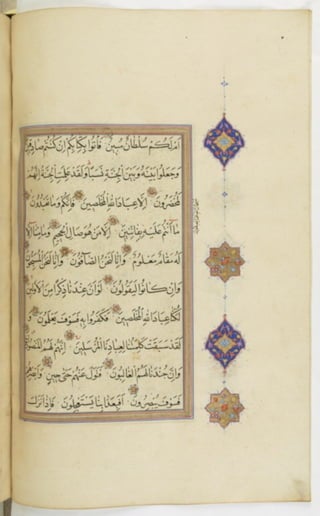 اَمْ لَكُمْ سُلْطَانٌ مُبِينٌ فَأْتُوا بِكِتَابِكُمْ اِنْ كُنْتُمْ صَادِقِينَ
وَجَعَلُوا بَيْنَهُ وَبَيْنَ الْجِنَّةِ نَسَبًا وَلَقَدْ عَلِمَتِ الْجِنَّةُ اِنَّهُمْ
لَمُحْضَرُونَ اِلَّا عِبَادَ اللهِ الْمُخْلَصِينَ فَاِنَّكُمْ وَمَا تَعْبُدُونَ
مَا اَنْتُمْ عَلَيْهِ بِفَاتِنِينَ اِلَّا مَنْ هُوَ صَالِ الْجَحِيمِ وَمَا مِنَّا اِلَّا
لَهُ مَقَامٌ مَعْلُومٌ وَاِنَّا لَنَحْنُ الصَّافُّونَ وَاِنَّا لَنَحْنُ الْمُسَبِّحُونَ
وَاِنْ كَانُوا لَيَقُولُونَ لَوْ اَنَّ عِنْدَنَا ذِكْرًا مِنَ الْاَوَّلِينَ
لَكُنَّا عِبَادَ اللهِ الْمُخْلَصِينَ فَكَفَرُوا بِهِ فَسَوْفَ يَعْلَمُونَ وَ
لَقَدْ سَبَقَتْ كَلِمَتُنَا لِعِبَادِنَا الْمُرْسَلِينَ اِنَّهُمْ لَهُمُ الْمَنْصُورُونَ
وَاِنَّ جُنْدَنَا لَهُمُ الْغَالِبُونَ فَتَوَلَّ عَنْهُمْ حَتَّى حِينٍ وَاَبْصِرْهُمْ
فَسَوْفَ يُبْصِرُونَ اَفَبِعَذَابِنَا يَسْتَعْجِلُونَ فَاِذَا نَزَلَ